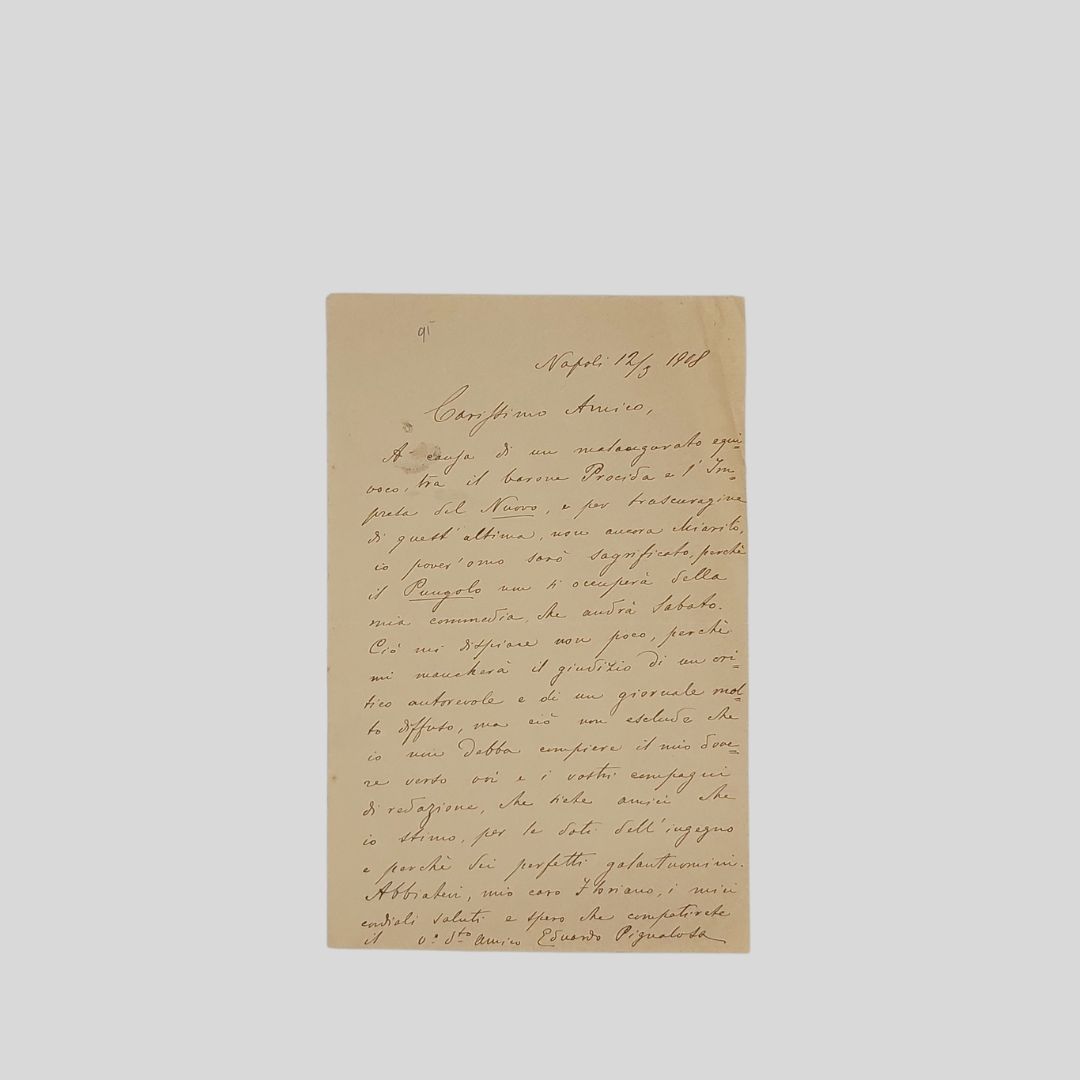 91
Napoli 12/3 1908
Carissimo Amico,
A causa di un malaugurato equi=
voco, tra il barone Procida e l'Im=
presa del Nuovo, e per trascuragine
di quest'ultima, non ancora chiarito,
io pover'omo sarò sagrificato, perchè
il Pungolo non si occuperà della
mia commedia, che andrà Sabato.
Ciò mi dispiace non poco, perchè
mi mancherà il giudizio di un cri=
tico autorevole e di un giornale mol=
to diffuso, ma ciò non esclude che
io non debba compiere il mio dove=
re verso voi e i vostri compagni
di redazione, che siete amici che
io stimo, per le doti dell'ingegno
e perchè dei perfetti galantuomini.
Abbiatevi, mio caro Floriano, i miei
cordiali saluti e spero che compatirete
il v.° d.to amico Eduardo Pignalosa